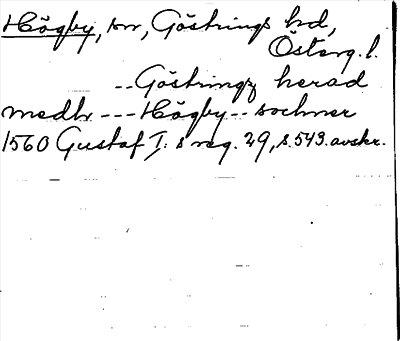 Högby, sn, Göstrings hd,
Österg. l.
--Göstringz herad
medh --- Högby -- sochner
1560 Gustaf I:s reg. 29, s. 543. avskr.